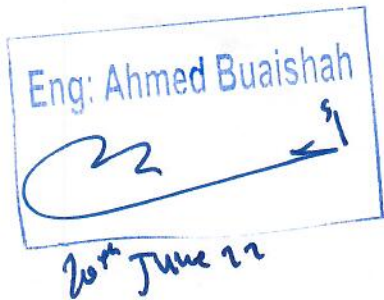 Eng: Ahmed Buaishah
20th June 22